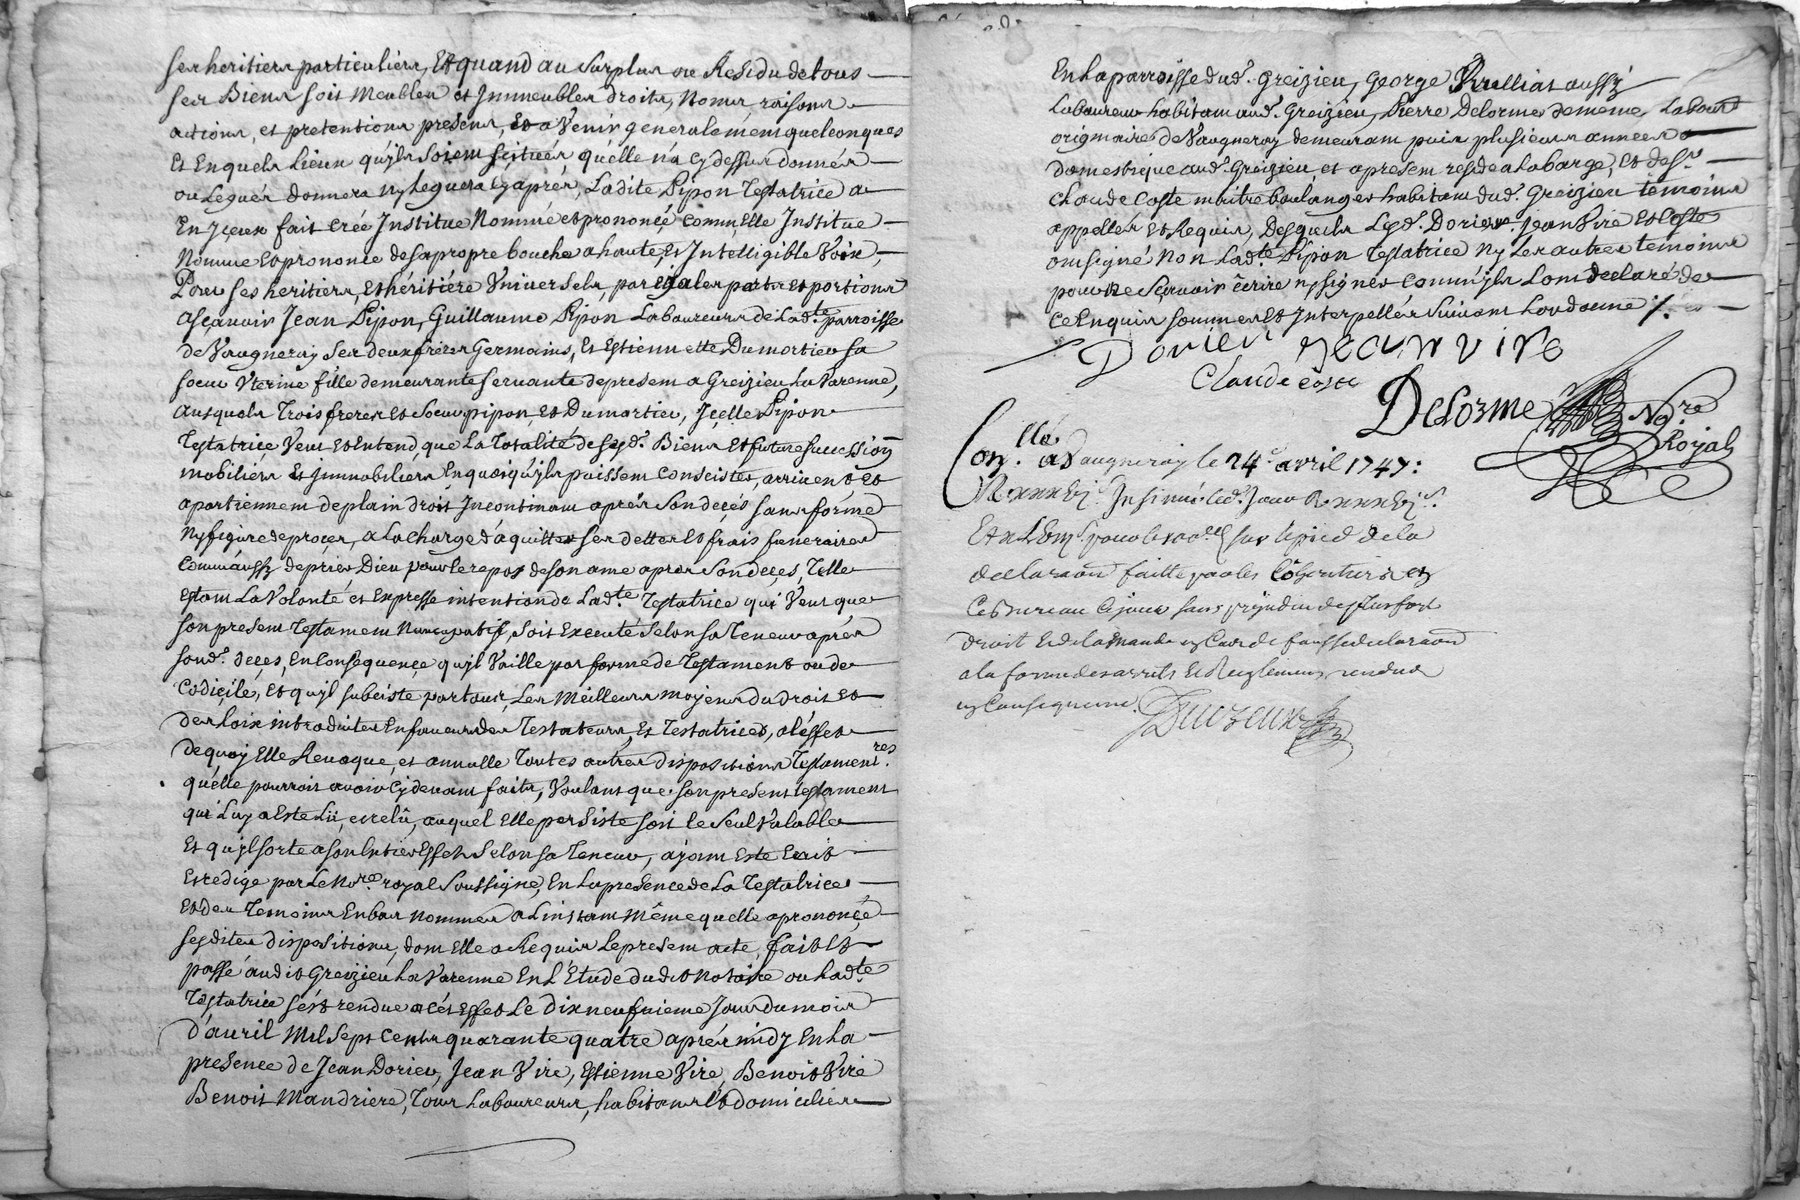 ses heritiers particuliers, Et quand au surplus ou Residu de tous
ses Biens soit Meubles et Immeubles droits, Noms raisons
actions, et pretentions presens, et a Venir generalement quelconques
Et En quels Lieux qu'ils soient scitués qu'elle n'a cy dessus donnés
ou Legués donnera ny leguera cy aprés, Ladite Pipon Testatrice a
En yceux fait creé Institué Nommé et prononcé comm'Elle Institue
Nomme et prononce de sa propre bouche a haute, et Intelligible Voix,
Pour ses heritiers, et héritiére Universels, par egales parts et portions
asçavoir Jean Pipon, Guillaume Pipon Laboureurs de Lad.te parroisse
de Vaugneray ses deux freres Germains, Et Estiennette Dumortier sa
soeur Uterine fille demeurante servante de present a Greizieu La Varenne,
Ausquels Trois freres et Soeur pipon, et Dumortier, Jcelle Pipon
Testatrice Veut et Entend, que La Totalité de sesd. Biens et future succession
mobiliers et Jmmobiliers En quoi qu'yls puissent conscister, arrivent et
apartiennent de plain droit Incontinant aprés Son decés sans forme
Ny figure de procès, a La charge d'aquitter ses dettes et frais funeraires
comm'aussy de prier Dieu pour le repos de son ame aprés Son decés, Telle
Estant La Volonté et Expresse intention de Lad.te Testatrice qui Veut que
son present Testament Nuncupatif, Soit Executé Selon sa Teneur aprés
sond. decés, En Conséquence qu'jl Vaille par forme de Testament ou de
Codicile, Et qu'jl subciste par tous, Les Meilleurs moyens du droit et
des Loix introduites En faveur des Testateurs, Et Testatrices, a L'éffet
de quoy Elle Revoque, et annulle Toutes autres dispositions Testament.res
qu'elle pourroit avoir cy devant faits, Voulant que son present testament
qui Luy a Este Lü, et relû, auquel Elle persiste soit le Seul Valable
Et qu'jl sorte a son Entier Effet Selon sa Teneur, ajant Este Ecrit
Et redigé par Le No.re royal Soussigné, En La presence de La Testatrice
Et des Temoins En bas nommés a L'instant Même quelle a prononcé
sesdites dispositions, dont Elle a Requis Le present acte, fait Et
passé audit Greizieu La Varenne En L'Etude dudit notaire ou Lad.te
Testatrice s'ést rendue a cét Effet Le Dixneufvieme Jour du mois
D'avril Mil Sept Cents quarante quatre aprés midy En La
presence de Jean Dorier, Jean Vire, Estienne Vire, Benoit Vire
Benoit Mandriere, Tous Laboureurs, habitans Et domiciliés
En La parroisse dud. Greizieu, George Rulliat aussy
Laboureur habitant aud. Greizieu, Pierre Delorme de même, Labour
originaire de Vaugneray demeurant puis plusieurs années
Domestique aud. Greizieu, et apresent reside a La barge, Et de Sr.
Claude Coste maitre boulanger habitant dud. Greizieu témoins
appellés Et Requis, Desquels Lesd. Dorier, Jean Vire Et Coste
ont signé Non Lad.te Pipon Testatrice Ny Les autres temoins
pour ne Sçavoir êcrire ny signer comm'yls L'ont declaré de
ce Enquis sommés et Interpellés Suivant Lordonne ./.
Dorier Jean Vire
Claude Coste
Delorme No.re
Royal
Con.llé a Vaugneray le 24e avril 1747:
R. xxxvj s. Insinué led. Jour R. xxxvj s.
sur le pied de la
declaraon faitte par les Cohéritiers en
Ce Bureau ce jour sans préjudice de plus fort
droit Et de la mande en cas de fausse declaraon
a la forme des arrets Et Reglemens rendus
en Consequence.